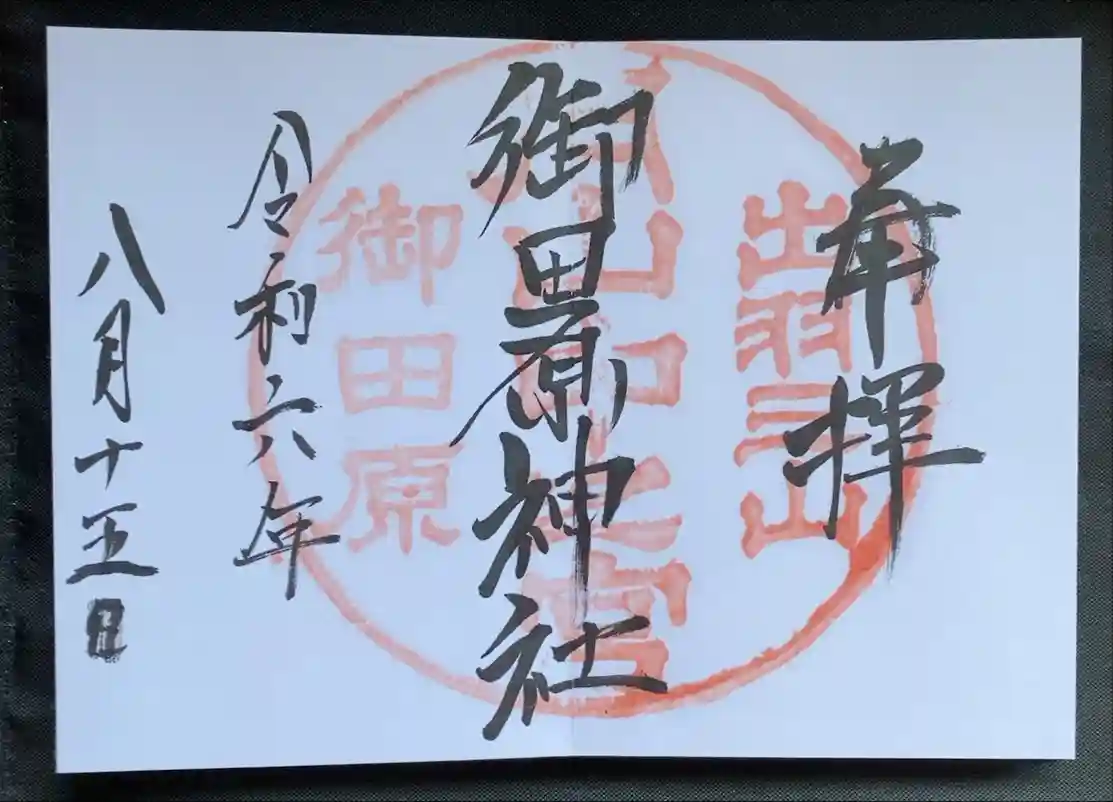 奉拝
出羽三山
御田原神社
月山中之宮
御田原
令和六年
八月十五日